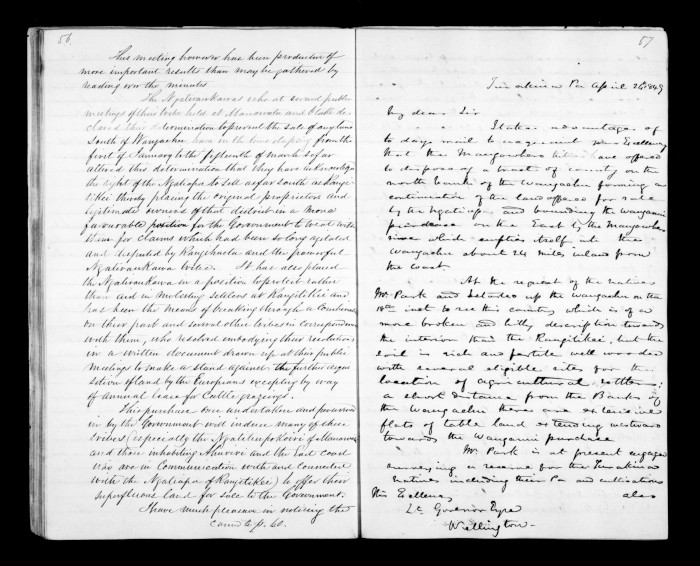 56.
This meeting however has been productive of
more important results than may be gathered by
reading over the minutes
The Ngatiraukawas who at several public
meetings of their tribe held at Manawatu and Otaki de
clared their determination to prevent the sale of any land
South of Wangaehu have in the time elapsing from the
first of January to the fifteenth of March so far
altered this determination that they have acknowledged
the right of the Ngatiapa to sell as far south as Rangi
tikei thereby placing the original proprietors and
legitimate owners of that district in a more
favourable position for the Government to treat with
them for claims which had been so long agitated
and disputed by Rangihaeata and the powerful
Ngatiraukawa tribe. It has also placed
the Ngatiraukawa in a position to protect rather
than aid in molesting settlers at Rangitikei and
has been the means of breaking through a combination
on their part and several other tribes in correspondence
with them, who resolved embodying their resolutions
in a written document drawn up at their public
meetings to make a stand against the further acqui
sition of land by the Europeans excepting by way
of annual lease for Cattle grazings.
This purchase once undertaken and persevered
in by the Government will induce many of these
tribes (especially the of Manawatu
and those inhabiting Ahuriri and the East Coast
who are in communication with and connected
with the Ngatiapa of Rangitikei) to offer their
superfluous land for sale to the Government.
I have much pleasure in noticing the
cont'd p. 60.
57
Turakina Pa April 26 1849
My dear Sir
I take advantage of
to days mail to acquaint your Excellency
that the Wangaehu tribe have offered
to dispose of a tract of country on the
north bank of the Wangaehu forming a
continuation of the land offered for sale
by the Ngatiapa and bounding the Wanganui
purchase on the East by the
river which empties itself into the
Wangaehu about 24 miles inland from
the coast
At the request of the natives
Mr. Park and I up the Wangaehu on the
18th inst to see this country which is of a
more broken and hilly description towards
the interior than the Rangitikei, but the
soil is rich and fertile well wooded
with several eligible sites for the
location of agricultural settlers;
a short distance from the Banks of
the Wangaehu there are extensive
flats of table land extending westward
towards the Wanganui purchase
Mr. Park is at present engaged
surveying a reserve for the Turakina
natives including their Pa and cultivations
His Excellency also
Lt. Governor Eyre
Wellington